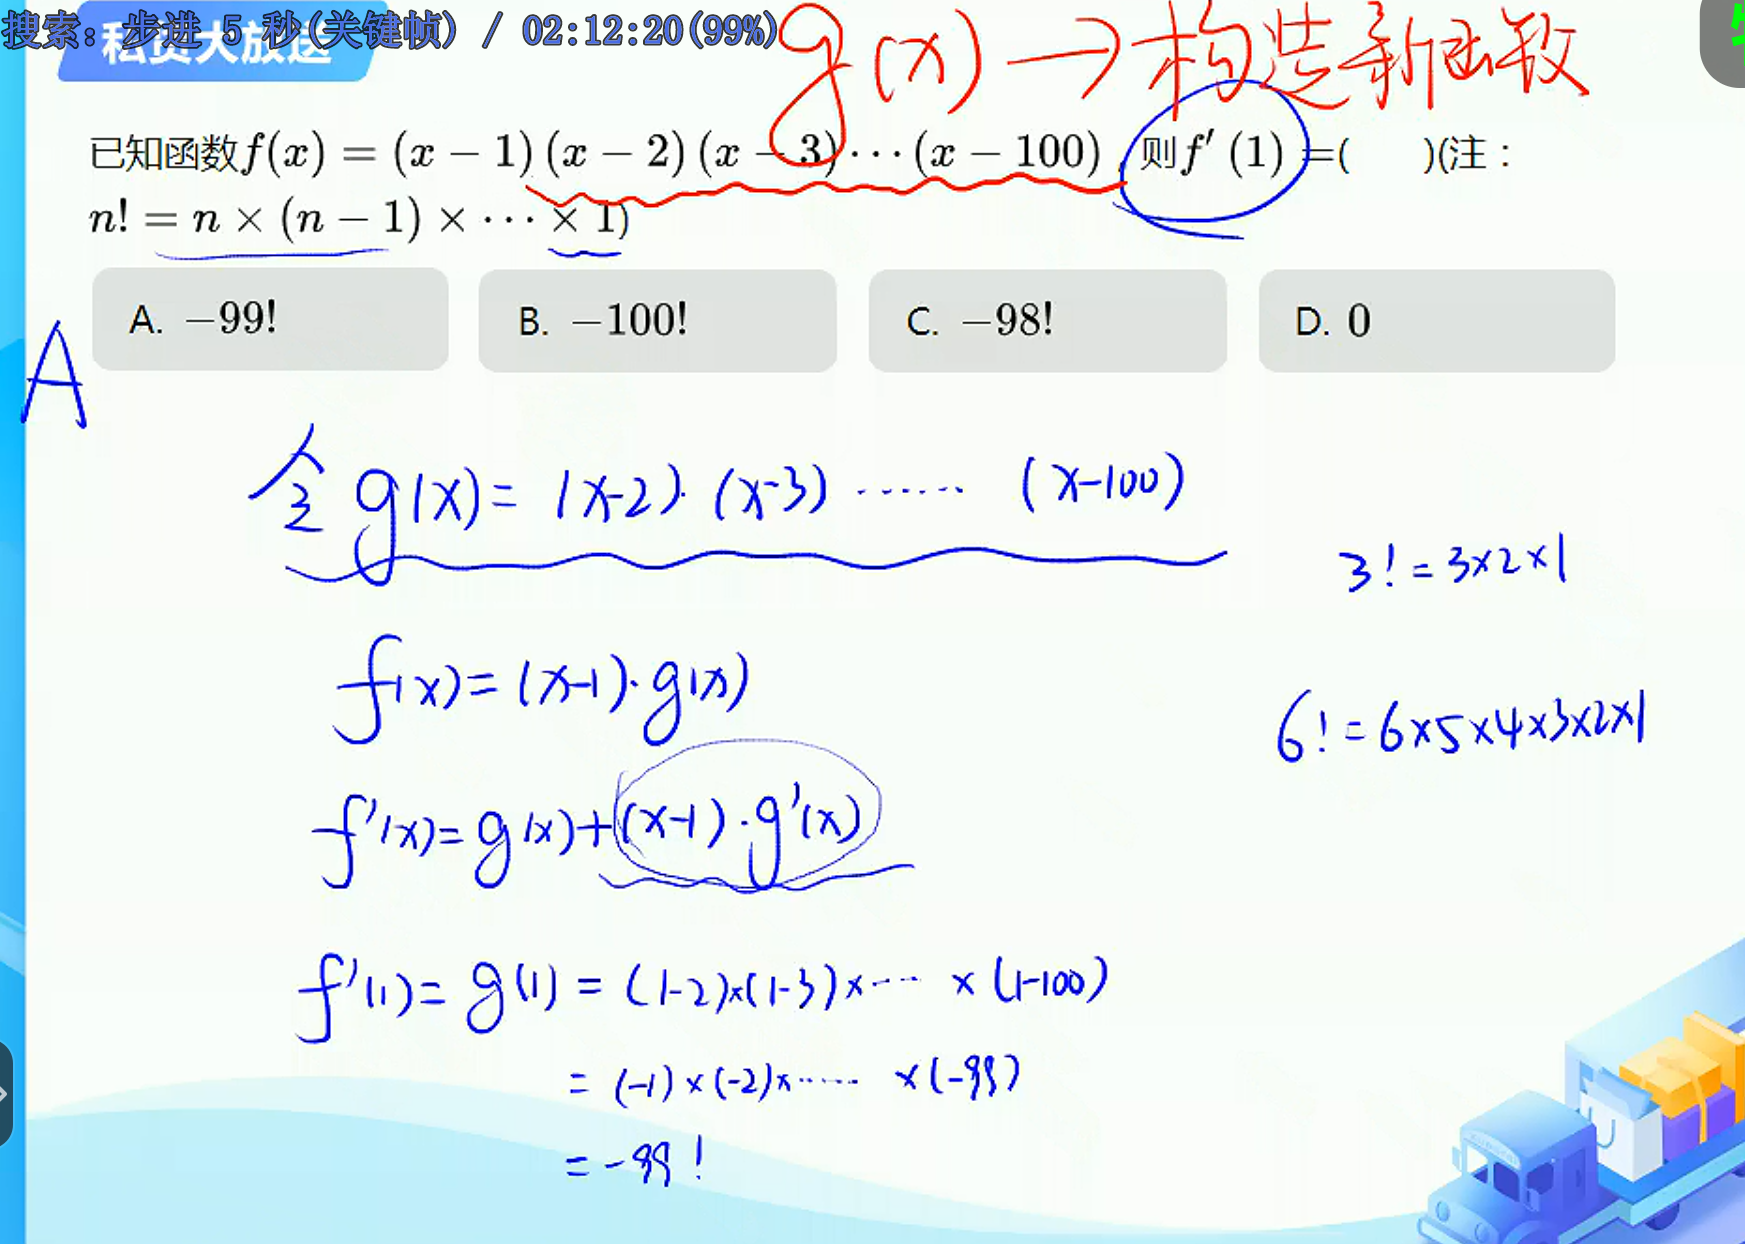 搜索: 步进 5 秒(关键帧) / 02:12:20(99%)
私货大放送
g(x) → 构造新函数
已知函数f(x) = (x − 1)(x − 2)(x − 3)⋯(x − 100), 则f′(1)=( )(注:
n! = n × (n − 1) × ⋯ × 1)
A. −99!
B. −100!
C. −98!
D. 0
A
令 g(x) = (x-2)·(x-3) …… (x-100)
3! = 3×2×1
f(x) = (x-1)·g(x)
6! = 6×5×4×3×2×1
f'(x) = g(x)+(x-1)·g'(x)
f'(1) = g(1) = (1-2)×(1-3)×… ×(1-100)
= (-1)×(-2)×…… ×(-99)
= -99!